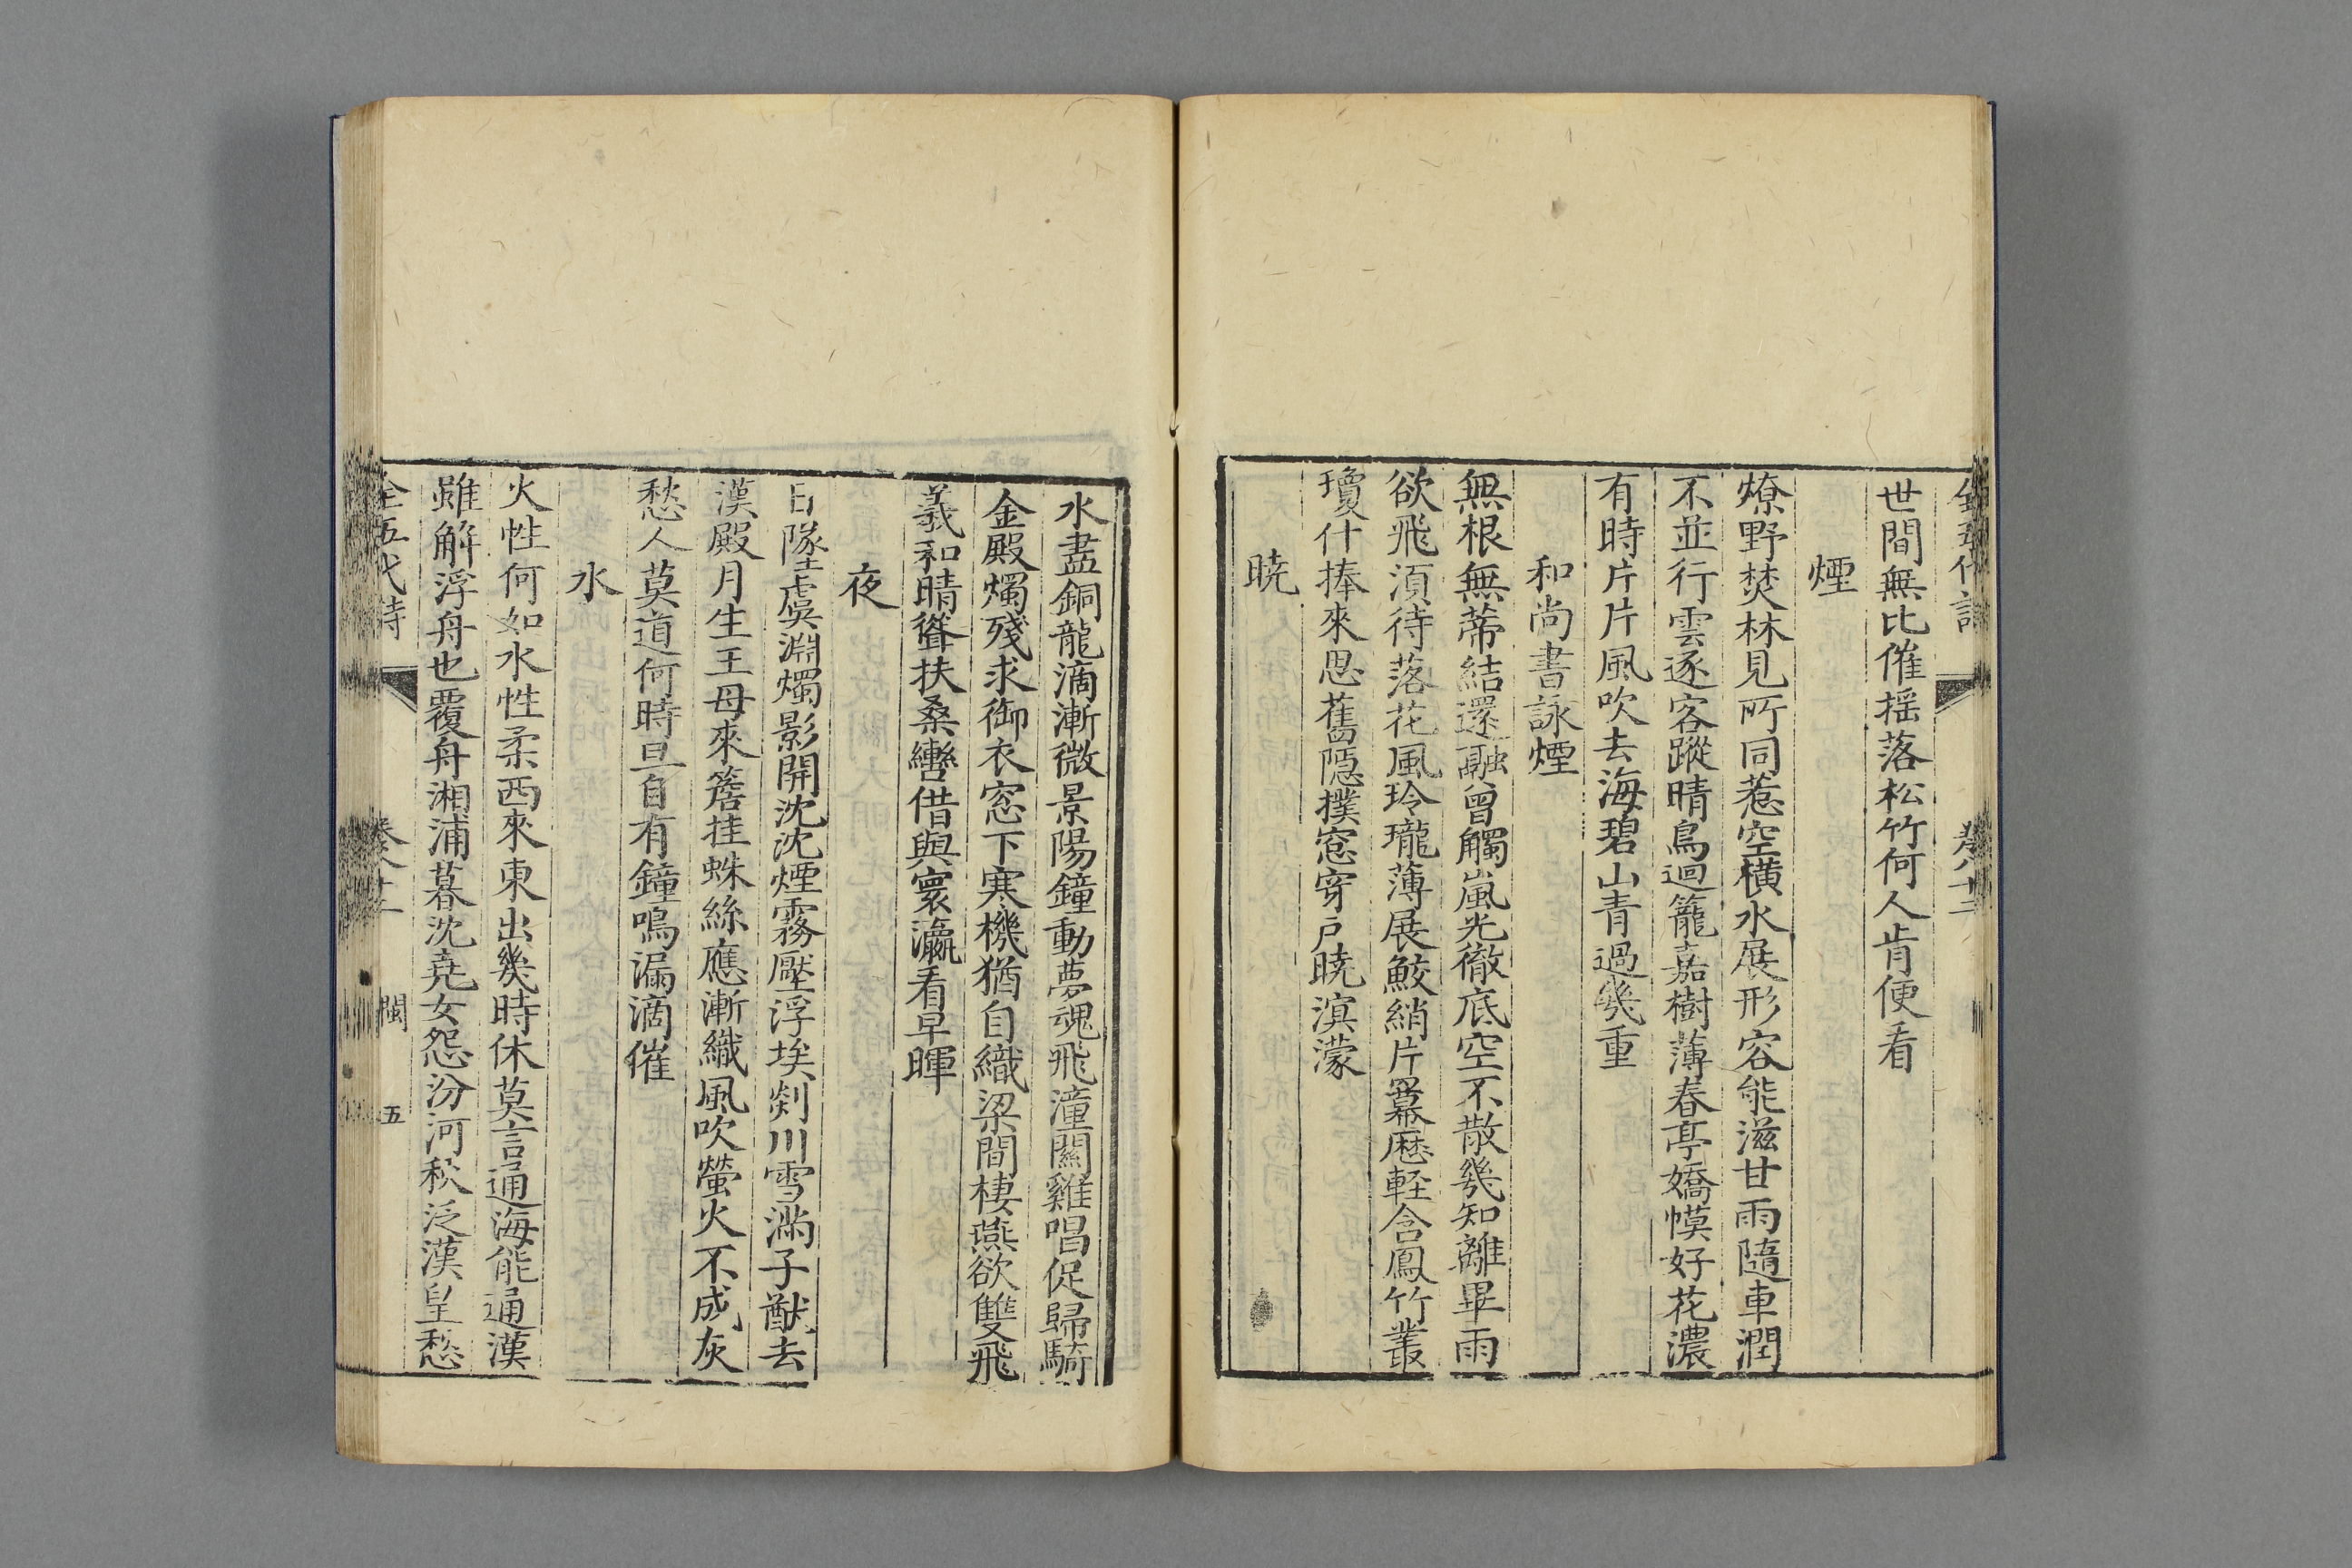 全五代詩
卷八十二
世間無比催揺落松竹何人肯便看
煙
燎野焚林見所同惹空横水展形容能滋甘雨隨車潤
不並行雲逐客蹤晴鳥迴籠嘉樹薄春亭嬌幙好花濃
有時片片風吹去海碧山青過幾重
和尚書詠煙
無根無蒂結還融曾觸嵐光徹底空不散幾知離畢雨
欲飛須待落花風玲瓏薄展鮫綃片羃歷輕含鳳竹叢
瓊什捧來思舊隱撲窓穿戸曉溟濛
曉
水盡銅龍滴漸微景陽鐘動夢魂飛潼關雞唱促歸騎
金殿燭殘求御衣窓下寒機猶自織梁間棲燕欲雙飛
羲和晴聳扶桑轡借與寰瀛看早暉
夜
日墜虞淵燭影開沈沈煙霧壓浮埃剡川雪滿子猷去
漢殿月生王母來簷挂蛛絲應漸織風吹螢火不成灰
愁人莫道何時旦自有鐘鳴漏滴催
水
火性何如水性柔西來東出幾時休莫言通海能通漢
雖解浮舟也覆舟湘浦暮沈堯女怨汾河秋泛漢皇愁
全五代詩
卷八十二
閩
五